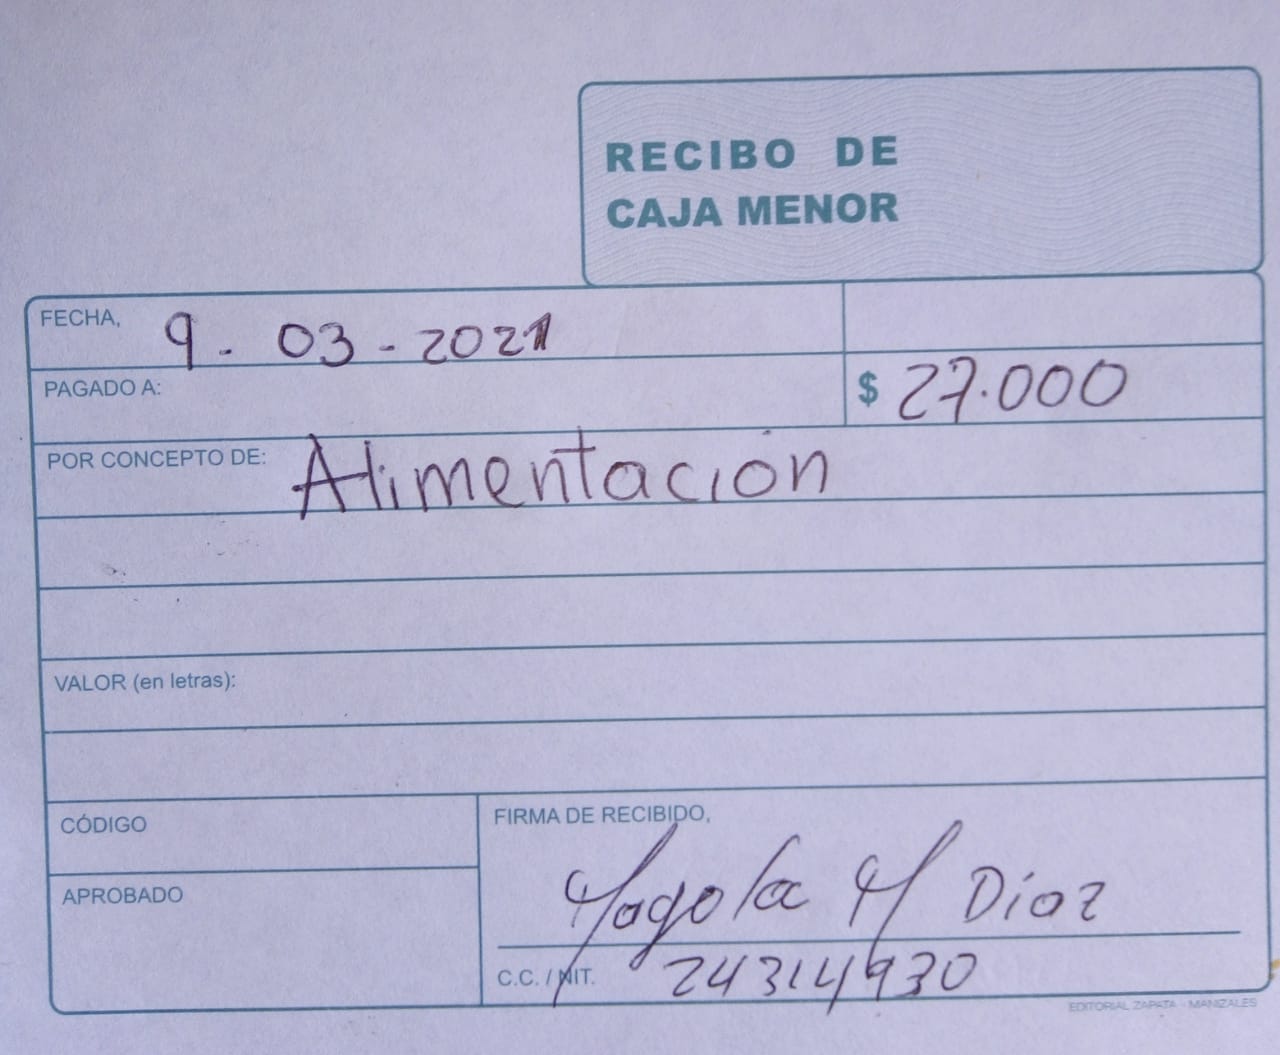 RECIBO DE
CAJA MENOR
FECHA, 9 - 03 - 2021
PAGADO A: $ 27.000
POR CONCEPTO DE: Alimentación
VALOR (en letras):
CÓDIGO
FIRMA DE RECIBIDO,
APROBADO
Magola M Díaz
C.C. / NIT. 24314930
EDITORIAL ZAPATA - MANIZALES